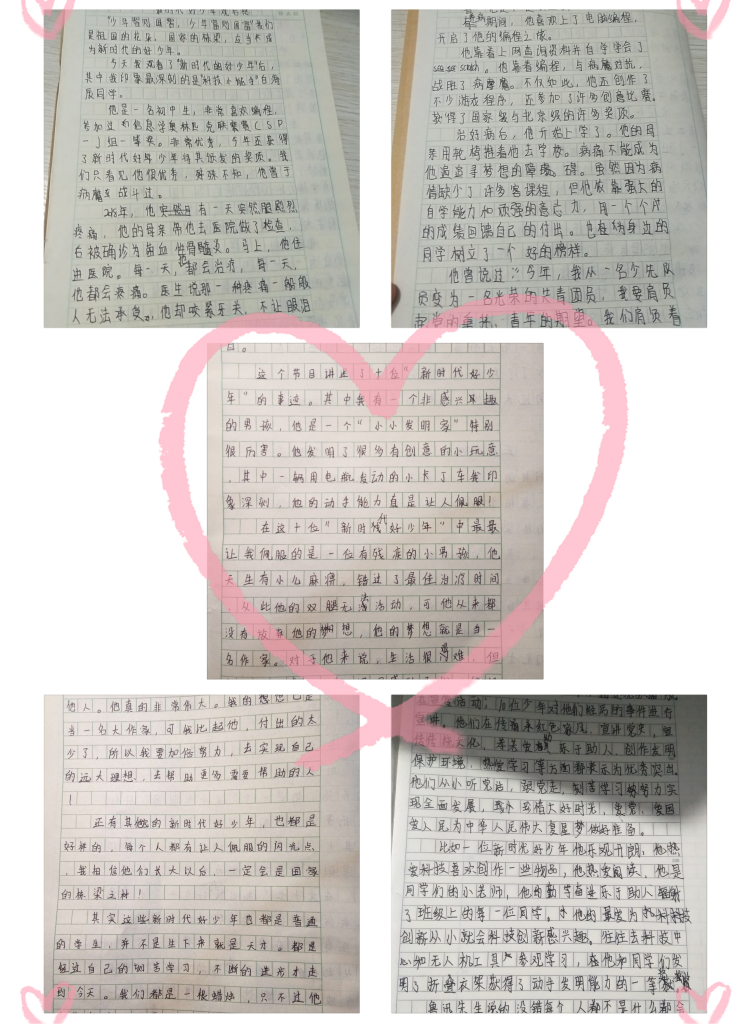 "少年智则国智，少年富则国富"我们
是祖国的花朵，国家的栋梁，应当长成
为新时代的好少年。
今天我观看了"新时代的好少年"后，
其中我印象最深刻的是科技小能手白海
辰同学。
他是一名初中生，非常喜欢编程，
参加过的信息学奥林匹克联赛CSP
一J组一等奖。非常优秀，今年还获得
了新时代好少年特其颁发的奖项。我
们只看见他很优秀，殊殊不知，他曾于
病魔互战斗过。
有一天突然腿剧烈
疼痛，他的母亲带他去医院做了检查，
后被确诊为
骨髓炎。马上，他住
进医院。每一天，他都会治疗，每一天，
他都会疼痛。医生说那一种疼痛一般般
人无法承受，他却咬紧牙关，不让眼泪
期间，他喜欢上了电脑编程，
开启了他的编程之旅。
他靠着上网查询资料并自学学会了
。他靠着编程，与病魔对抗，
战胜了病摩魔。不仅如此，他还创作了
不少游戏程序，还参加了许多创意比赛，
获得了国家级与北京级的许多奖项。
治好病后，他开始上学了。他的母
亲用轮椅推着他去学校。病痛不能成为
他追寻寻梦想的障碍。虽然因为病
情缺少了许多客课程，但他依靠强大的
自学能力和顽强的意志力，用一个个好
的成绩回馈自己的付出。也在为身边的
同学树立了一个好的榜样。
他曾说过："今年，我从一名少先队
员变为一名光荣的共青团员，我要肩负
起党的重托，青年的期望。我们肩负着
目。
这个节目讲述了十位"新时代好少
年"的事迹。其中我有一个非感兴趣
的男孩，他是一个"小小发明家"特别
很厉害。他发明了很多有创意的小玩意
，其中一辆用电瓶发动的小卡丁车我印
象深刻，他的动手能力真是让人佩服！
在这十位"新时代好少年"中最最
让我佩服的是一位有残疾的小男孩，他
天生有小儿麻痹，错过了最佳治疗时间
，从此他的双腿无法活动，可他从来都
没有放弃他的梦想，他的梦想就是当一
名作家。对于他来说，生活很艰难，但
他人。他真的非常伟大。我的想想也是
当一名大作家，可我比起他，付出的太
少了，所以我要加倍努力，去实现自己
的远大理想，去帮助更多需要帮助的人
！
还有其他的新时代好少年，也都是
好样的，每个人都有让人佩服的闪光点
，我相信他们长大以后，一定会是国家
的栋梁之材！
其实这些新时代好少年也都是普通
的学生，并不是生下来就是天才。都是
经过自己的刻苦学习，不断的进步才走
到今天。我们都是一根蜡烛，只不过他
活动；10位少年对他们经历的事件进行
宣讲。他们在传承红色家风，宣讲党史，
传统文化，孝老爱亲，乐于助人，创作发明
保护环境，热爱学习等方面都表示为优秀突出。
他们从小听党话，跟党走，刻苦学习努力实
现全面发展，美好时光，爱党，爱国
爱人民为中华人民伟大复兴梦做好准备。
比如一位新时代好少年他乐观开朗，他热
爱科技喜欢创作一些物品，他热爱阅读，他是
同学们的小老师，他的勤学奋进乐于助人辐射
了班级上的每一位同学。
创新从小就会科技创新感兴趣。往往去科技中
心和无人机工具参观学习，在他和同学们发
明了折叠衣架获得了动手发明能力的一等奖
鲁迅先生说的没错每个人都不是什么都会